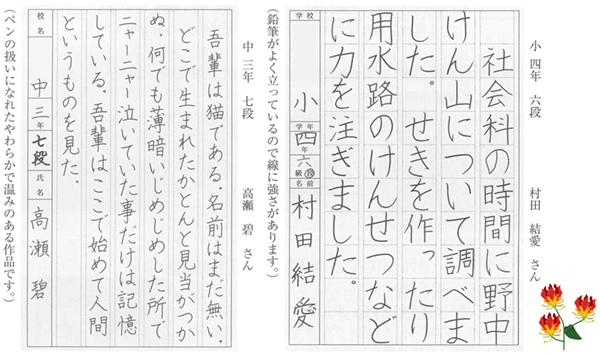 小 四年 六段 村田 結愛 さん
社会科の時間に野中
けん山について調べま
した。せきを作ったり
用水路のけんせつなど
に力を注ぎました。
学校 小 学年 四年 六 級 段 名前 村田結愛
(鉛筆がよく立っているので線に強さがあります。)
中 三年 七段 高瀬 碧 さん
吾輩は猫である。名前はまだ無い。
どこで生まれたかとんと見当がつか
ぬ。何でも薄暗いじめじめした所で
ニャーニャー泣いていた事だけは記憶
している。吾輩はここで始めて人間
というものを見た。
校名 中 三年 七段 氏名 高瀬 碧
(ペンの扱いになれたやわらかで温みのある作品です。)